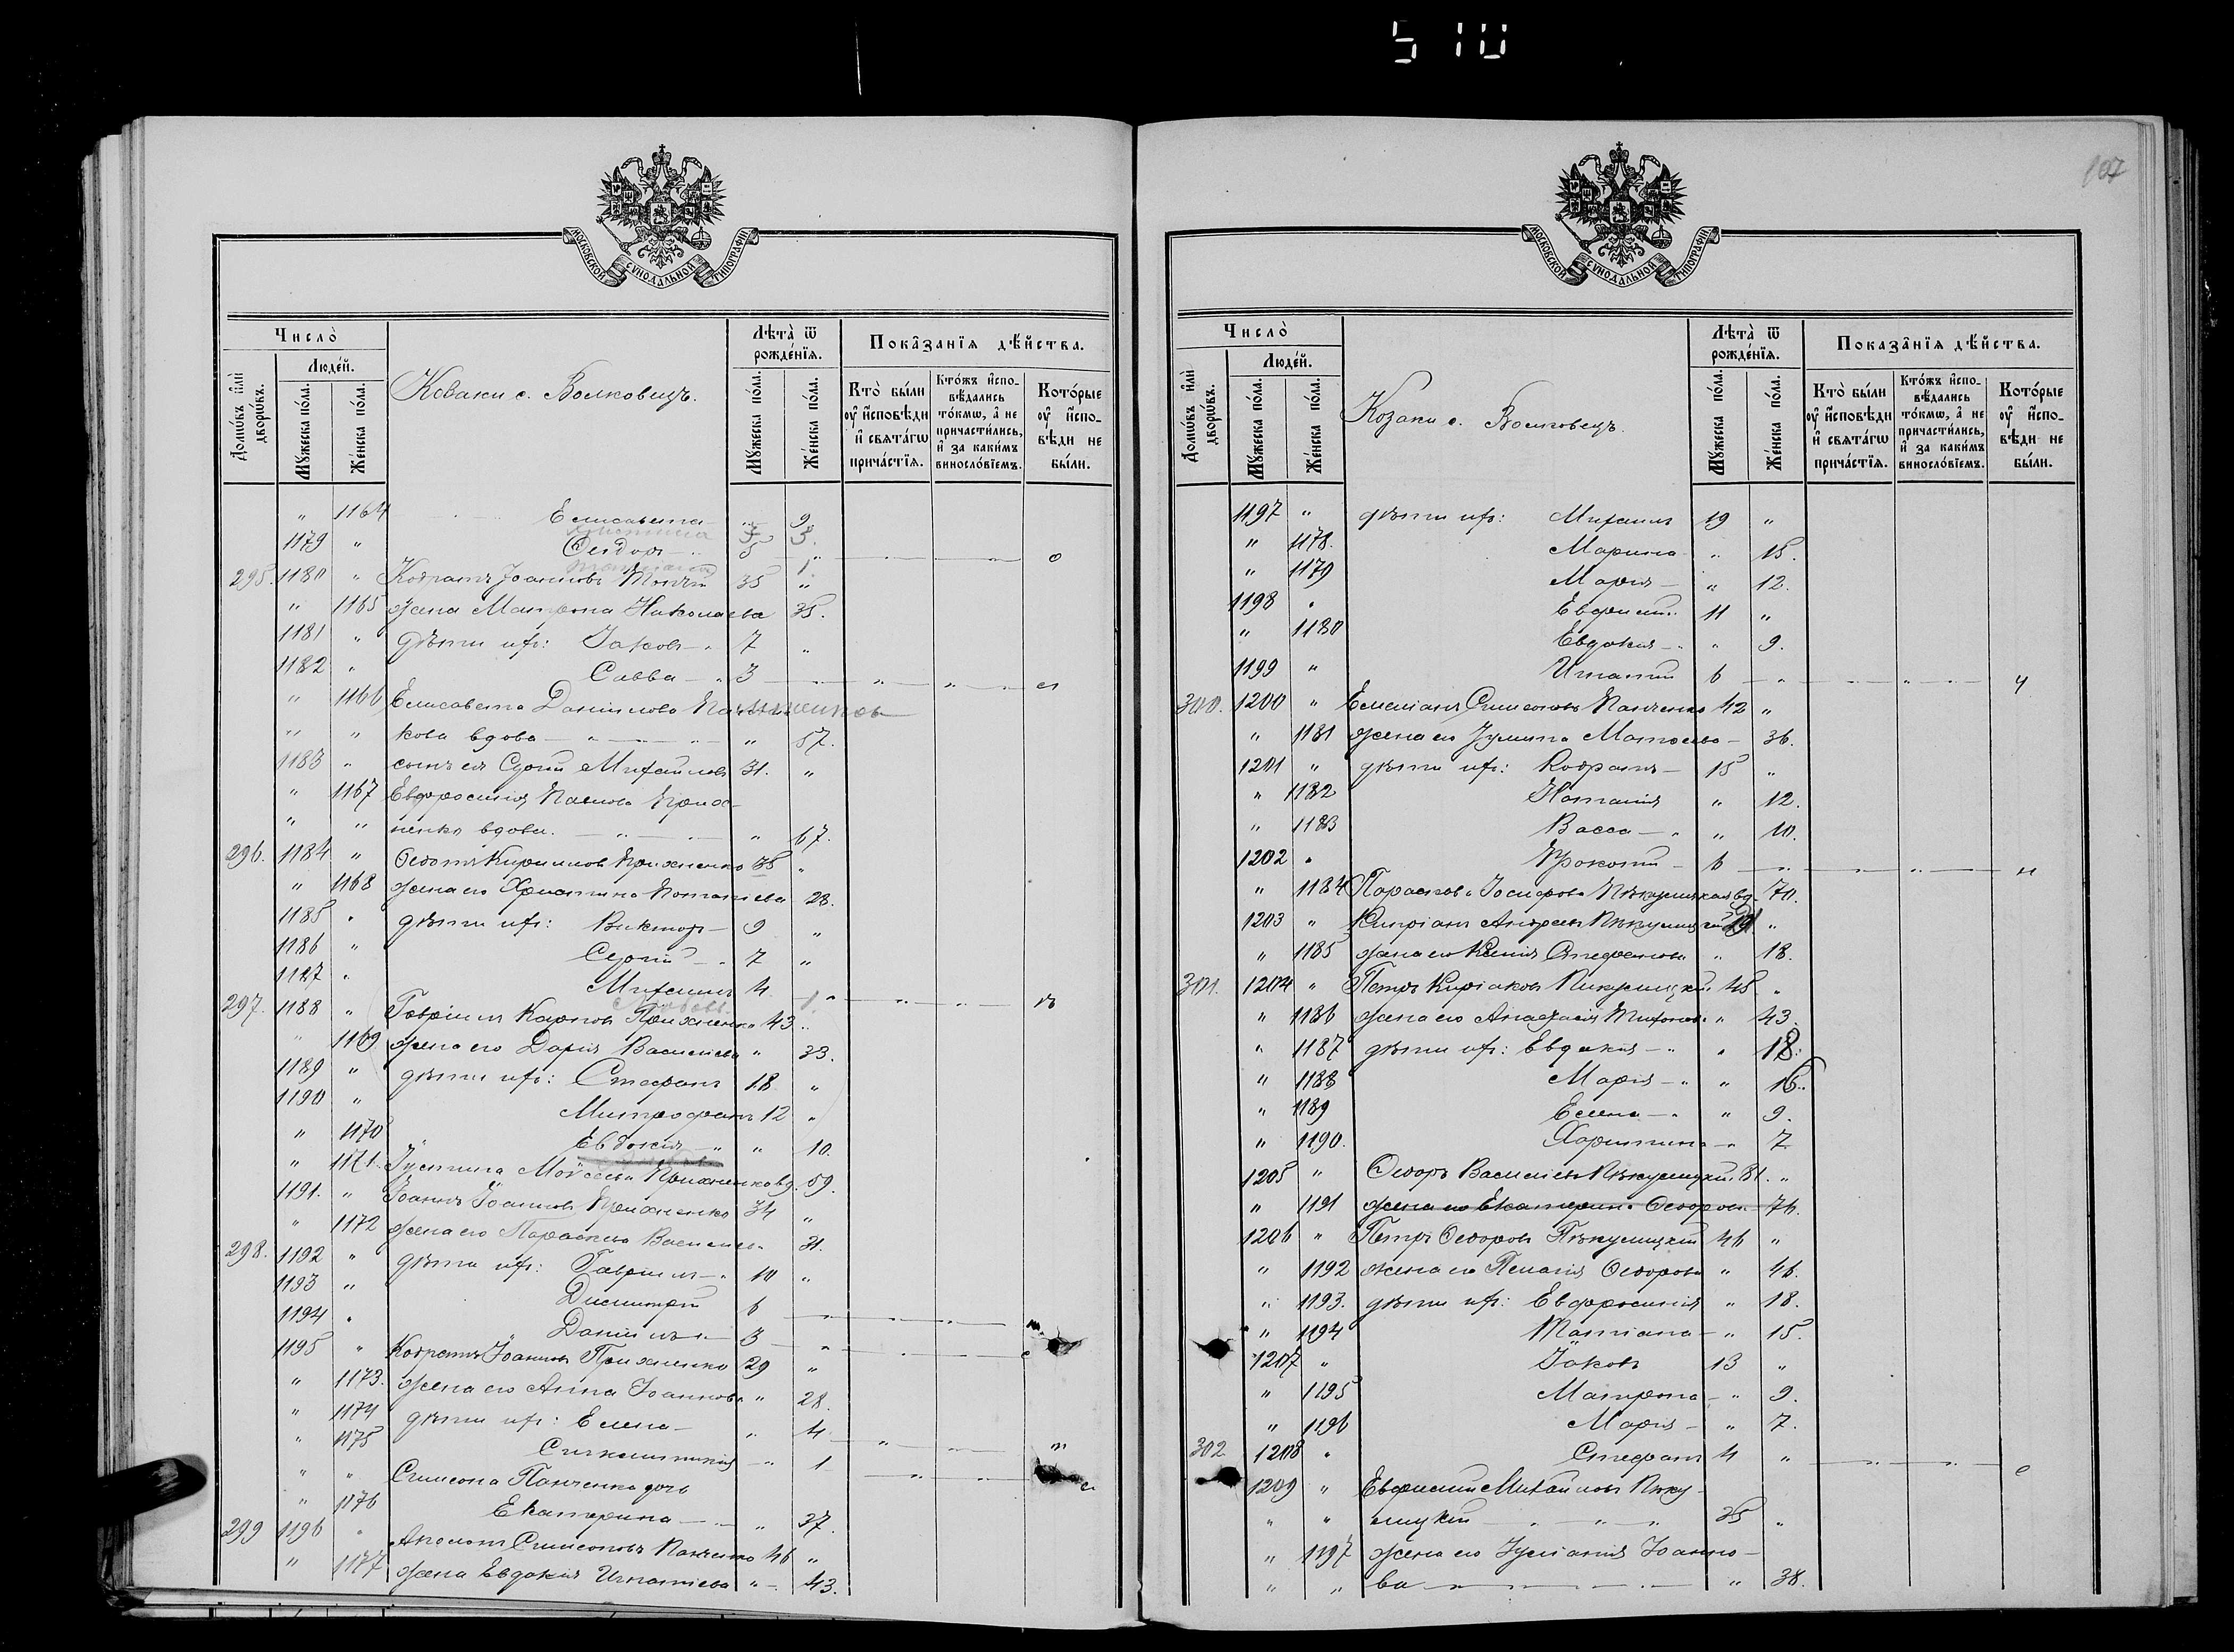 510
107
МОСКОВСКОЙ СѴНОДАЛЬНОЙ ТИПОГРАФІИ
Число̀
Людей.
Домѡвъ и҆лѝ дворѡвъ.
Мꙋжеска пола.
Женска пола.
Козаки с. Волковецъ.
Лѣта̀ ѿ рожденїѧ.
Мꙋжеска пола.
Женска пола.
Показанїѧ дѣйства.
Кто̀ были оу҆ и҆сповѣди и҆ свѧтагѡ причастїѧ.
Кто́жъ и҆сповѣдались то́кмѡ, а҆ не причастились, и҆ за какимъ винословїемъ.
Которые оу҆ и҆сповѣди не были.
" 1164 Елисавета " 9
1179 " Сидоръ 5 "
295. 1180 " Кодратъ Іоанновъ 35 "
" 1165 жена Матрона Николаева 35.
1181 " дѣти ихъ: Іаковъ 7 "
1182 " Савва 3
" 1166 Елисавета Даніилова
" " кова вдова " 57.
1183 " сынъ ея Сергій Михаиловъ 31. "
" 1167 Евфросинія Павлова Приос-
" " ненко вдова. " 67.
296. 1184 " Федотъ Кириловъ 35 "
" 1168 жена его Христина 28.
1185 " дѣти ихъ: Викторъ 9 "
1186 " Сергій 7 "
1187 " Михаилъ 4
297. 1188 " Гавріилъ Карповъ 43 "
" 1169 жена его Дарія Василіева " 33.
1189 " дѣти ихъ: Стефанъ 18 "
1190 " Митрофанъ 12 "
" 1170 Евдокія " 10.
" 1171 Іустина Моѵсеева вд. 59.
1191. " Іоаннъ Іоанновъ 34 "
" 1172 жена его Параскева Василіева 31.
298. 1192 " дѣти ихъ: Гавріилъ 10 "
1193 " Димитрій 6
1194 " Даніилъ 3
1195 " Кодратъ Іоанновъ 29 "
" 1173. жена его Анна Іоаннова " 28.
" 1174 дѣти ихъ: Елена " 4
" 1175 Сигклитикія " 1
" " Симеона Панченка дочь
" 1176 Екатерина " 37.
299 1196 " Симеоновъ Панченко 46 "
" 1177 жена Евдокія Игнатіева " 43.
МОСКОВСКОЙ СѴНОДАЛЬНОЙ ТИПОГРАФІИ
Число̀
Людей.
Домѡвъ и҆лѝ дворѡвъ.
Мꙋжеска пола.
Женска пола.
Козаки с. Волковецъ.
Лѣта̀ ѿ рожденїѧ.
Мꙋжеска пола.
Женска пола.
Показанїѧ дѣйства.
Кто̀ были оу҆ и҆сповѣди и҆ свѧтагѡ причастїѧ.
Кто́жъ и҆сповѣдались то́кмѡ, а҆ не причастились, и҆ за какимъ винословїемъ.
Которые оу҆ и҆сповѣди не были.
1197 " дѣти ихъ: Михаилъ 19 "
" 1178. Марина " 15.
" 1179 Марія " 12.
1198 " Евфимій 11 "
" 1180 Евдокія " 9.
1199 " Игнатій 6
300. 1200 " Емеліанъ Симеоновъ Панченко 42 "
" 1181 жена его Іулита 36.
1201 " дѣти ихъ: Кодратъ 15 "
" 1182 Наталія " 12.
" 1183 Васса " 10.
1202 " Прокопій 6
" 1184 Параскева Іосифова вд. 70.
1203 " Кипріанъ Андреевъ 19 "
" 1185 жена его Ксенія Стефанова " 18.
301. 1204 " Петръ Киріаковъ 45 "
" 1186 жена его Анастасія " 43.
" 1187 дѣти ихъ: Евдокія " 18.
" 1188 Марія " 16.
" 1189 Елена " 9.
" 1190. Харитина " 7
1205 " Ѳеодоръ Василіевъ 81. "
" 1191 жена его Екатерина Ѳеодорова 76.
1206 " Петръ Ѳеодоровъ Пѣкулицкій 46 "
" 1192 жена его Пелагія Ѳеодорова " 46.
" 1193. дѣти ихъ: Евфросинія " 18.
" 1194 Татіана " 15.
1207 " Іаковъ 13 "
" 1195 Матрона " 9.
" 1196 Марія " 7.
302 1208 " Стефанъ 4 "
1209 " Евфимій Михаиловъ Пѣку-
" " лицкій 35 "
" 1197 жена его Іуліанія Іоанно-
" " ва " 38.